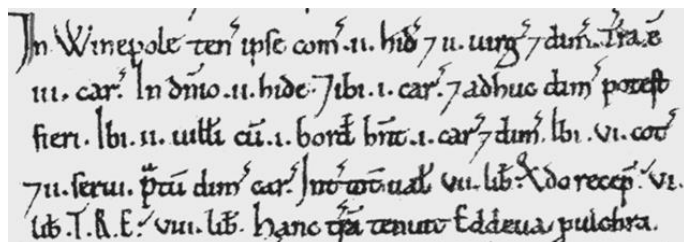 In Winepole ten̄ ipse com̄.ii. hid̄ ⁊ ii. uirḡ ⁊ dim̄. Tra.ē
iii. car̄. In dn̄io .ii. hide. ⁊ ibi .i. car̄. ⁊ adhuc dim̄ potest
fieri. Ibi .ii. uill̄i cū .i. bord̄ hn̄t .i. car̄ ⁊ dim̄. Ibi .vi. cot̄
⁊ ii. serui. p̄tū dim̄ car̄. Int̄ tot̄ ual̄ vii. lib̄. Q̄do recep̄. vi.
lib̄. T.R.E. viii. lib̄. hanc tr̄a tenuit Eddeua pulchra.